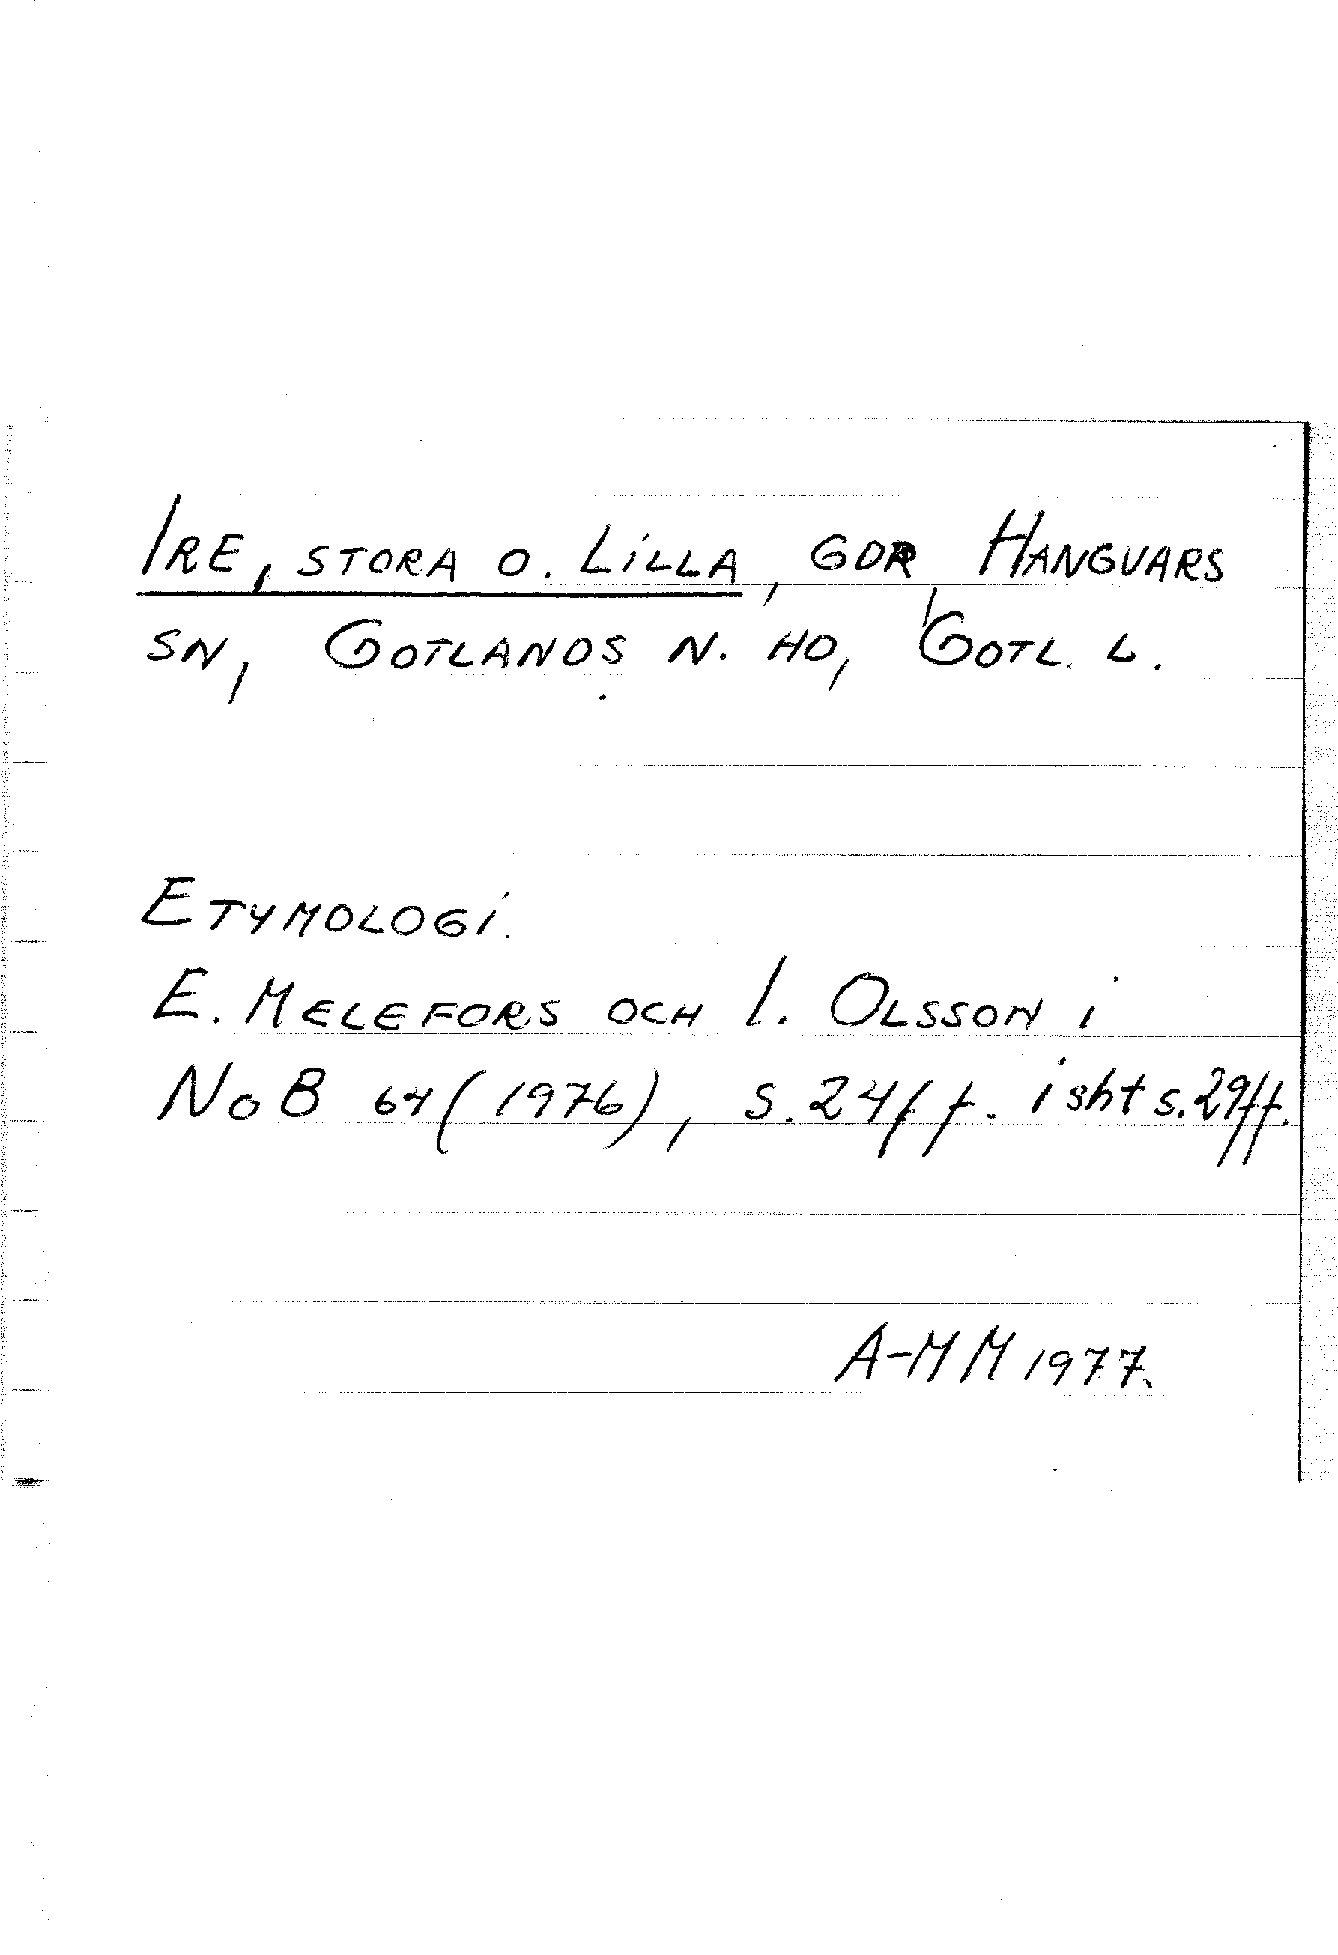 IRE, STORA O. LILLA, GDR, HANGVARS
SN, GOTLANDS N. HD, GOTL. L.
ETYMOLOGI.
E. MELEFORS OCH I. OLSSON I
NoB 64 (1976), S. 24 ff. isht s. 29 ff.
A-MM 1977.